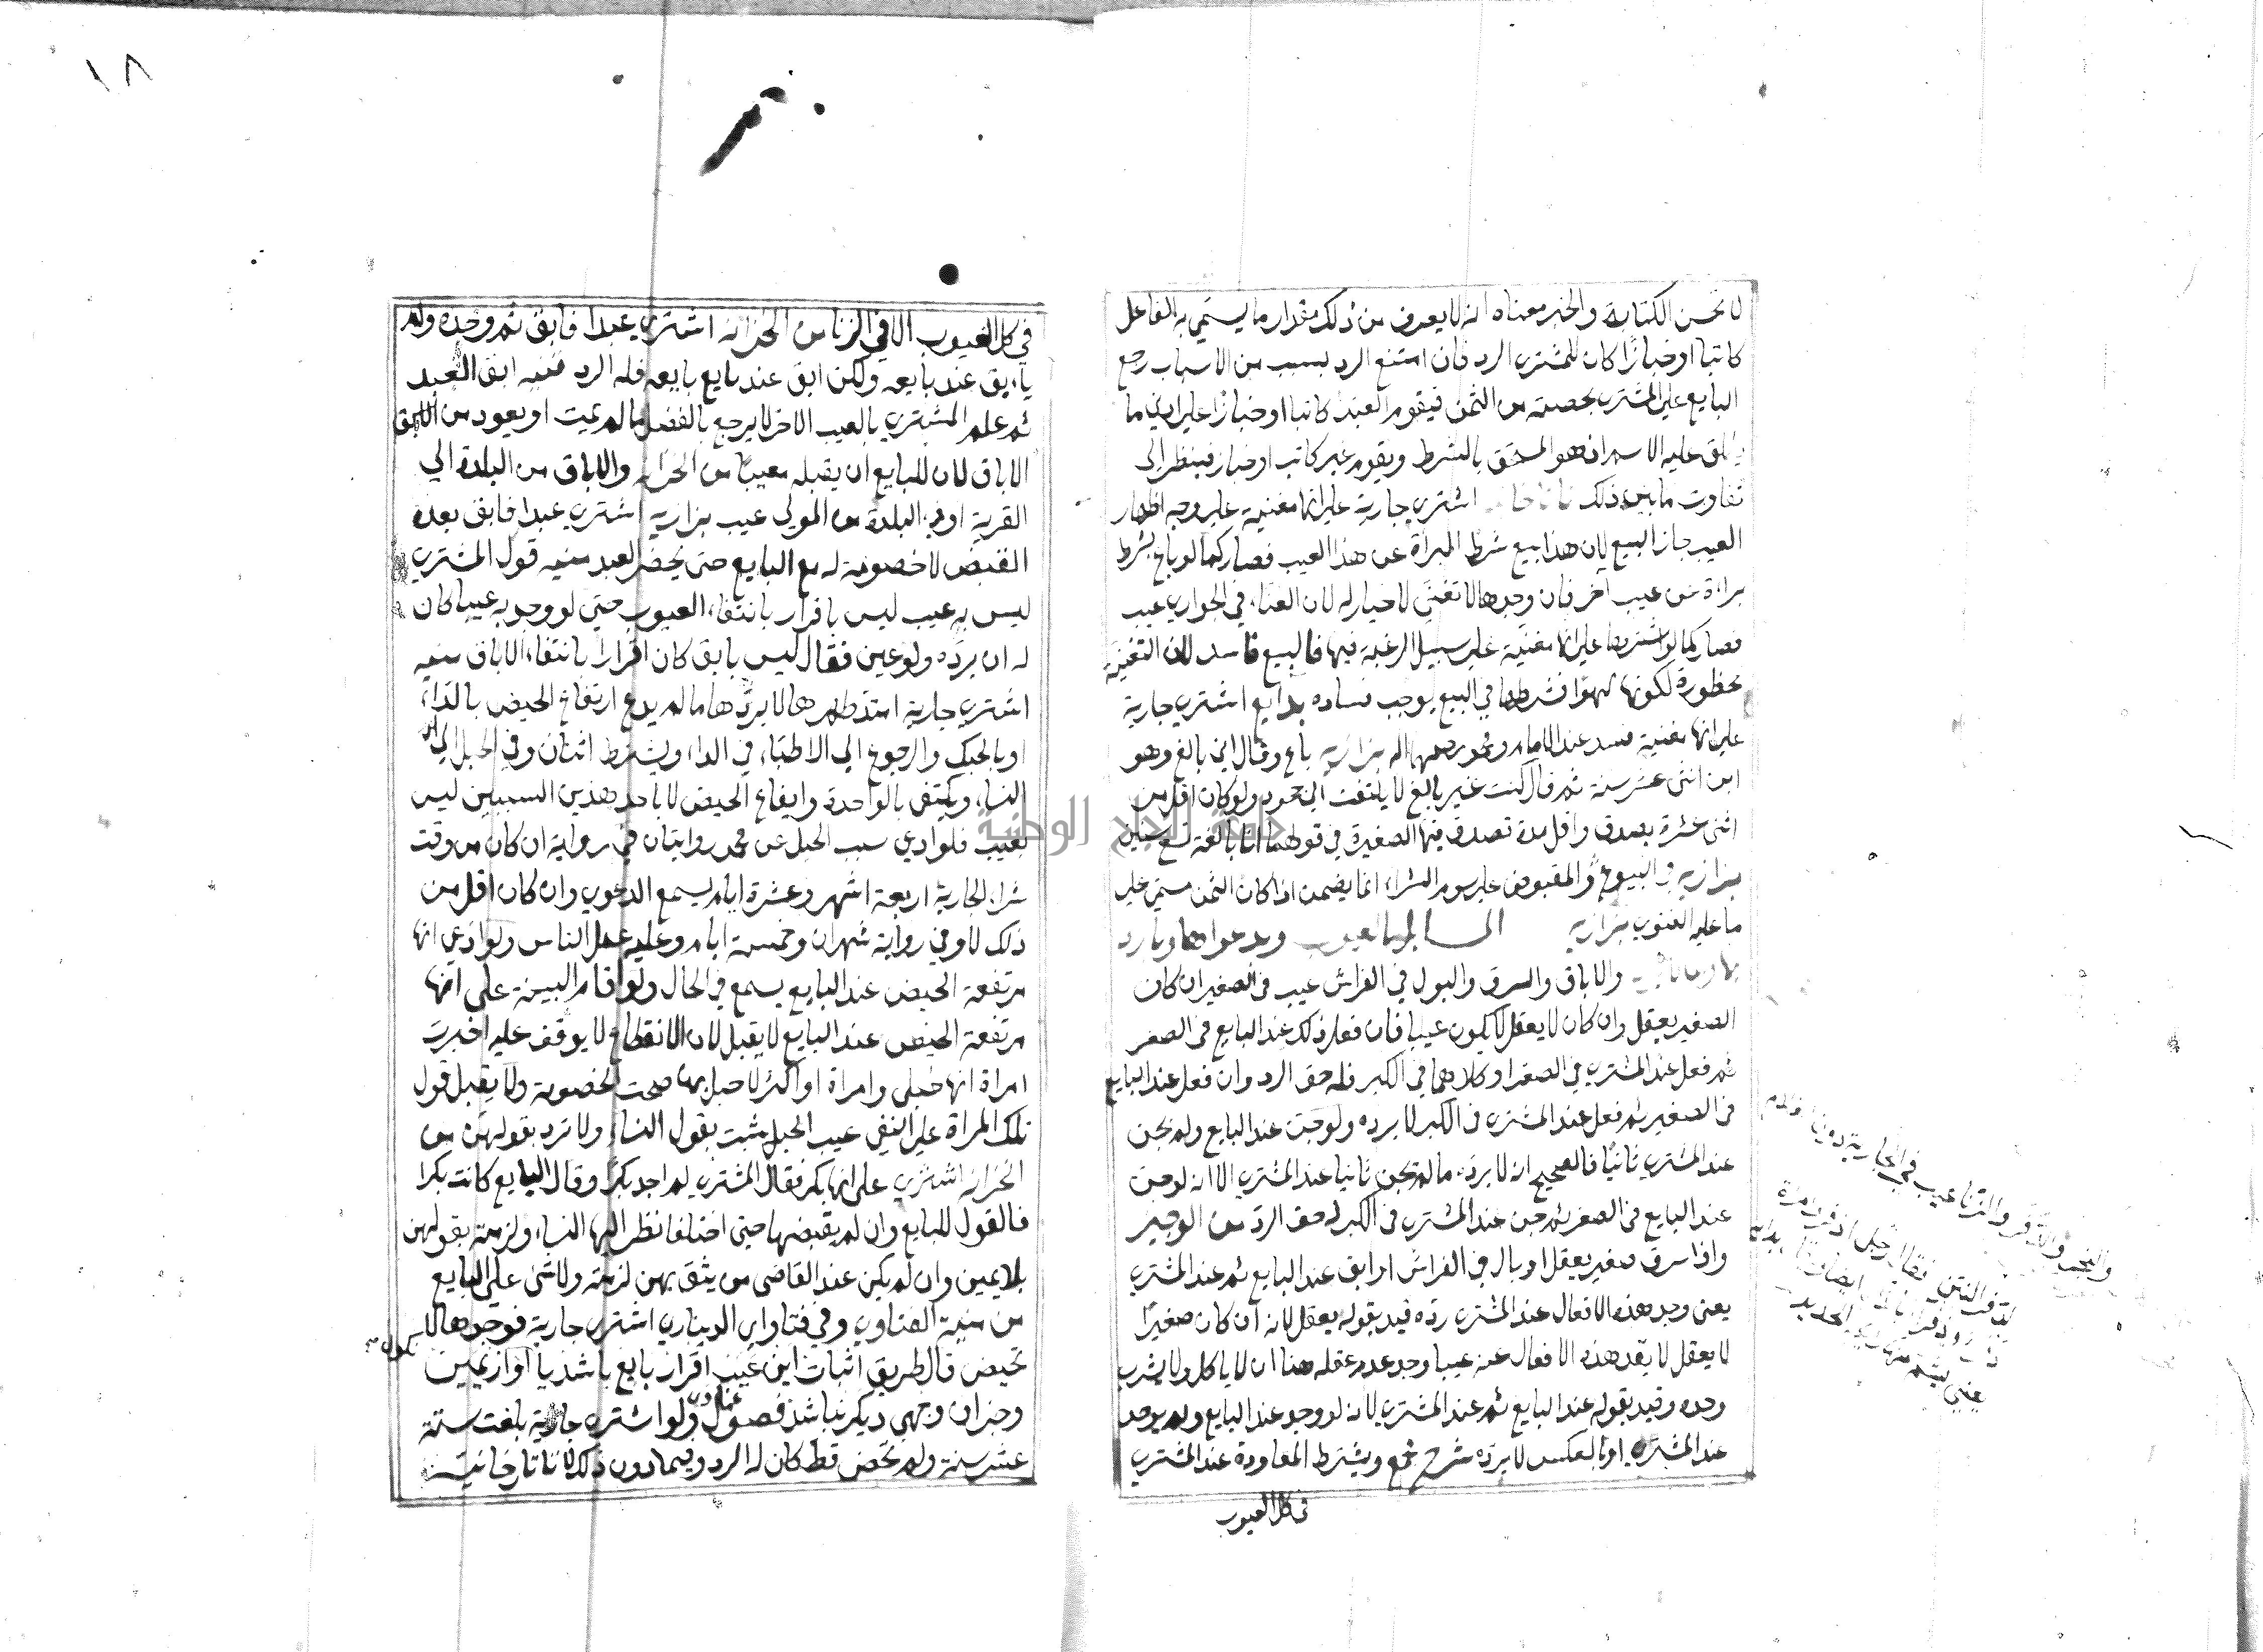 لا تحسن الكتابة والخبز معناه انه لا يعرف من ذلك مقدار ما يسمى به الفاعل
كاتبا او خبازا كان للمشتري الرد فان امتنع الرد بسبب من الاسباب رجع
البايع على المشتري بحصته من الثمن فيقوم العبد كاتبا او خبازا على ادنى ما
ينطلق عليه الاسم اذ هو المستحق بالشرط ويقوم غير كاتب او خباز فينظر الى
تفاوت ما بين ذلك اشترى جارية على انها مغنية على وجه اظهار
العيب جاز البيع لان هذا بيع شرط البراة عن هذا العيب فصار كما لو باع بشرط
براءة من عيب اخر فان وجدها لا تغني لا خيار له لان الغناء في الجواري عيب
فصار كما لو اشترط على انها مغنية على سبيل الرغبة فيها فالبيع فاسد لان التغنية
محظورة لكونها لهوا فشرطها في البيع يوجب فساده بدايع اشترى جارية
على انها مغنية فسد عند الامام ومحمد رحمهما الله بزازيه باع وقال اني بالغ وهو
ابن اثنى عشر سنة ثم قال كنت غير بالغ لا يلتفت الى جحوده ولو كان اقل من
اثنى عشرة يصدق واقل مدة تصدق فيها الصغيرة في قولها انا بالغة تسع سنين
بزازيه في البيوع والمقبوض على سوم الشراء انما يضمن اذا كان الثمن مسمى على
ما عليه الفتوى بزازيه العيوب ودعواها وما يرد
بها وما لا والاباق والسرق والبول في الفراش عيب في الصغير ان كان
الصغير يعقل وان كان لا يعقل لا يكون عيبا فان فعل ذلك عند البايع في الصغر
ثم فعل عند المشتري في الصغر او كلاهما في الكبر فله حق الرد وان فعل عند البايع
في الصغير ثم فعل عند المشتري في الكبر لا يرده ولو جن عند البايع ولم يجن
عند المشتري ثانيا فالصحيح انه لا يرده ما لم يجن ثانيا عند المشتري الا انه لو جن
عند البايع في الصغر ثم جن عند المشتري في الكبر له حق الرد من الوجيز
واذا سرق صغير يعقل او بال في الفراش او ابق عند البايع ثم عند المشتري
يعني وجد هذه الافعال عند المشتري رده قيد بقوله يعقل لانه ان كان صغيرا
لا يعقل لا يعد هذه الافعال عنه عيبا وجد عدم عقله هنا ان لا ياكل ولا يشرب
وحده وقيد بقوله عند البايع ثم عند المشتري لانه لو وجد عند البايع ولم يوجد
عند المشتري او بالعكس لا يرده شرح مجمع ويشترط المعاودة عند المشتري
في كل العيوب
والبخر والذفر والزنا عيب في الجارية
١٨
في كل العيوب الا في الزنا من الخزانه اشترى عبدا فابق ثم وجده ولم
يابق عند بايعه ولكن ابق عند بايع بايعه فله الرد منيه ابق العبد
ثم علم المشتري بالعيب الاخر لا يرجع بالفضل ما لم يمت او يعود من
الاباق لان للبايع ان يقبله معيبا من الخزانه والاباق من البلدة الى
القرية او في البلدة من المولى عيب بزازيه اشترى عبدا فابق بعده
القبض لا خصومة له مع البايع حتى يحضر العبد منيه قول المشتري
ليس به عيب ليس باقرار بانتفاء العيوب حتى لو وجد به عيبا كان
له ان يرده ولو عين فقال ليس بابق كان اقرارا بانتفاء الاباق منيه
اشترى جارية امتد طهرها لا يردها ما لم يدع ارتفاع الحيض بالداء
او بالحبل والرجوع الى الاطباء في الداء ويشترط اثنان وفي الحبل الى
النساء ويكتفى بالواحدة وارتفاع الحيض لا باحد هذين السببين ليس
بعيب فلو ادعى سبب الحبل عن محمد روايتان في رواية ان كان من وقت
شراء الجارية اربعة اشهر وعشرة ايام يسمع الدعوى وان كان اقل من
ذلك لا وفي رواية شهران وخمسة ايام وعليه عمل الناس ولو ادعى انها
مرتفعة الحيض عند البايع يسمع في الحال ولو اقام البينة على انها
مرتفعة الحيض عند البايع لا يقبل لان الانقطاع لا يوقف عليه اخبرت
امراة انها حبلى وامراة او اكثر لا حبل بها صحت الخصومة ولا يقبل قول
تلك المراة على النفي عيب الحبل يثبت بقول النساء ولا ترد بقولهن من
الخزانه اشترى على انها بكر فقال المشتري لم اجد بكرا وقال البايع كانت بكرا
فالقول للبايع وان لم يقبضها حتى اختلفا نظر اليها النساء ولزمته بقولهن
بلا يمين وان لم يكن عند القاضي من يثق بهن لزمته ولا شئ على البايع
من منية الفتاوي وفي فتاواي الديناري اشترى جارية فوجدها لا
تحيض قال طريق اثبات اين عيب اقرار بايع باشد يا
ديكر نباشد فصول عمادي ولو اشترى جارية بلغت ستة
عشر سنة ولم تحض قط كان له الرد وفيما دون ذلك لا تاتارخانية